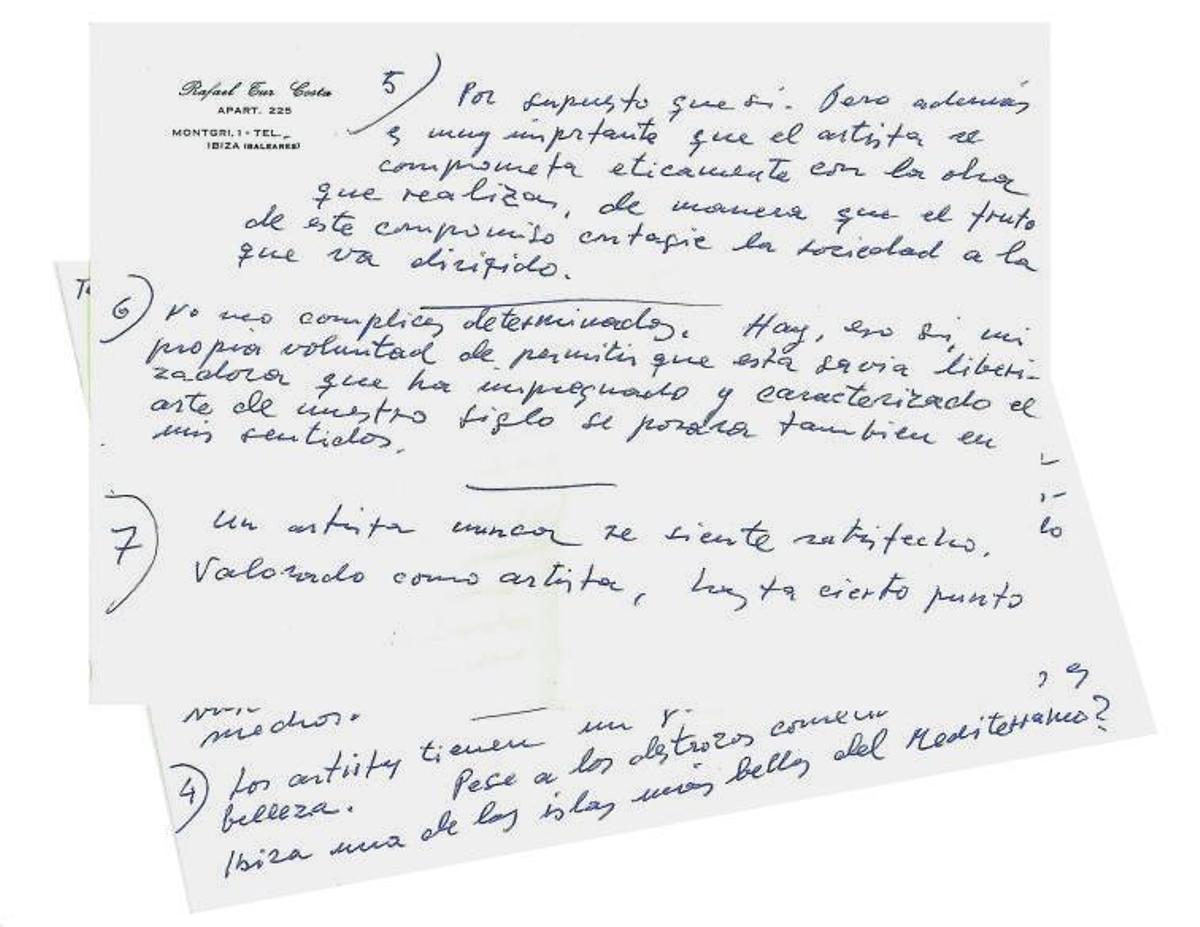 Rafael Tur Costa
APART. 225
MONTGRI, 1 - TEL.
IBIZA (BALEARES)
5) Por supuesto que si. Pero además
es muy importante que el artista se
comprometa eticamente con la obra
que realiza, de manera que el fruto
de este compromiso contagie la sociedad a la
que va dirigido.
6) No veo complices determinados. Hay, eso si, mi
propia voluntad de permitir que esta savia liberi-
zadora que ha impregnado y caracterizado el
arte de nuestro siglo se posara tambien en
mis sentidos.
7) Un artista nunca se siente satisfecho.
Valorado como artista, hasta cierto punto
lo
medios.
4) Los artistas tienen un
belleza. Pese a los destrozos
Ibiza una de las islas más bellas del Mediterraneo?